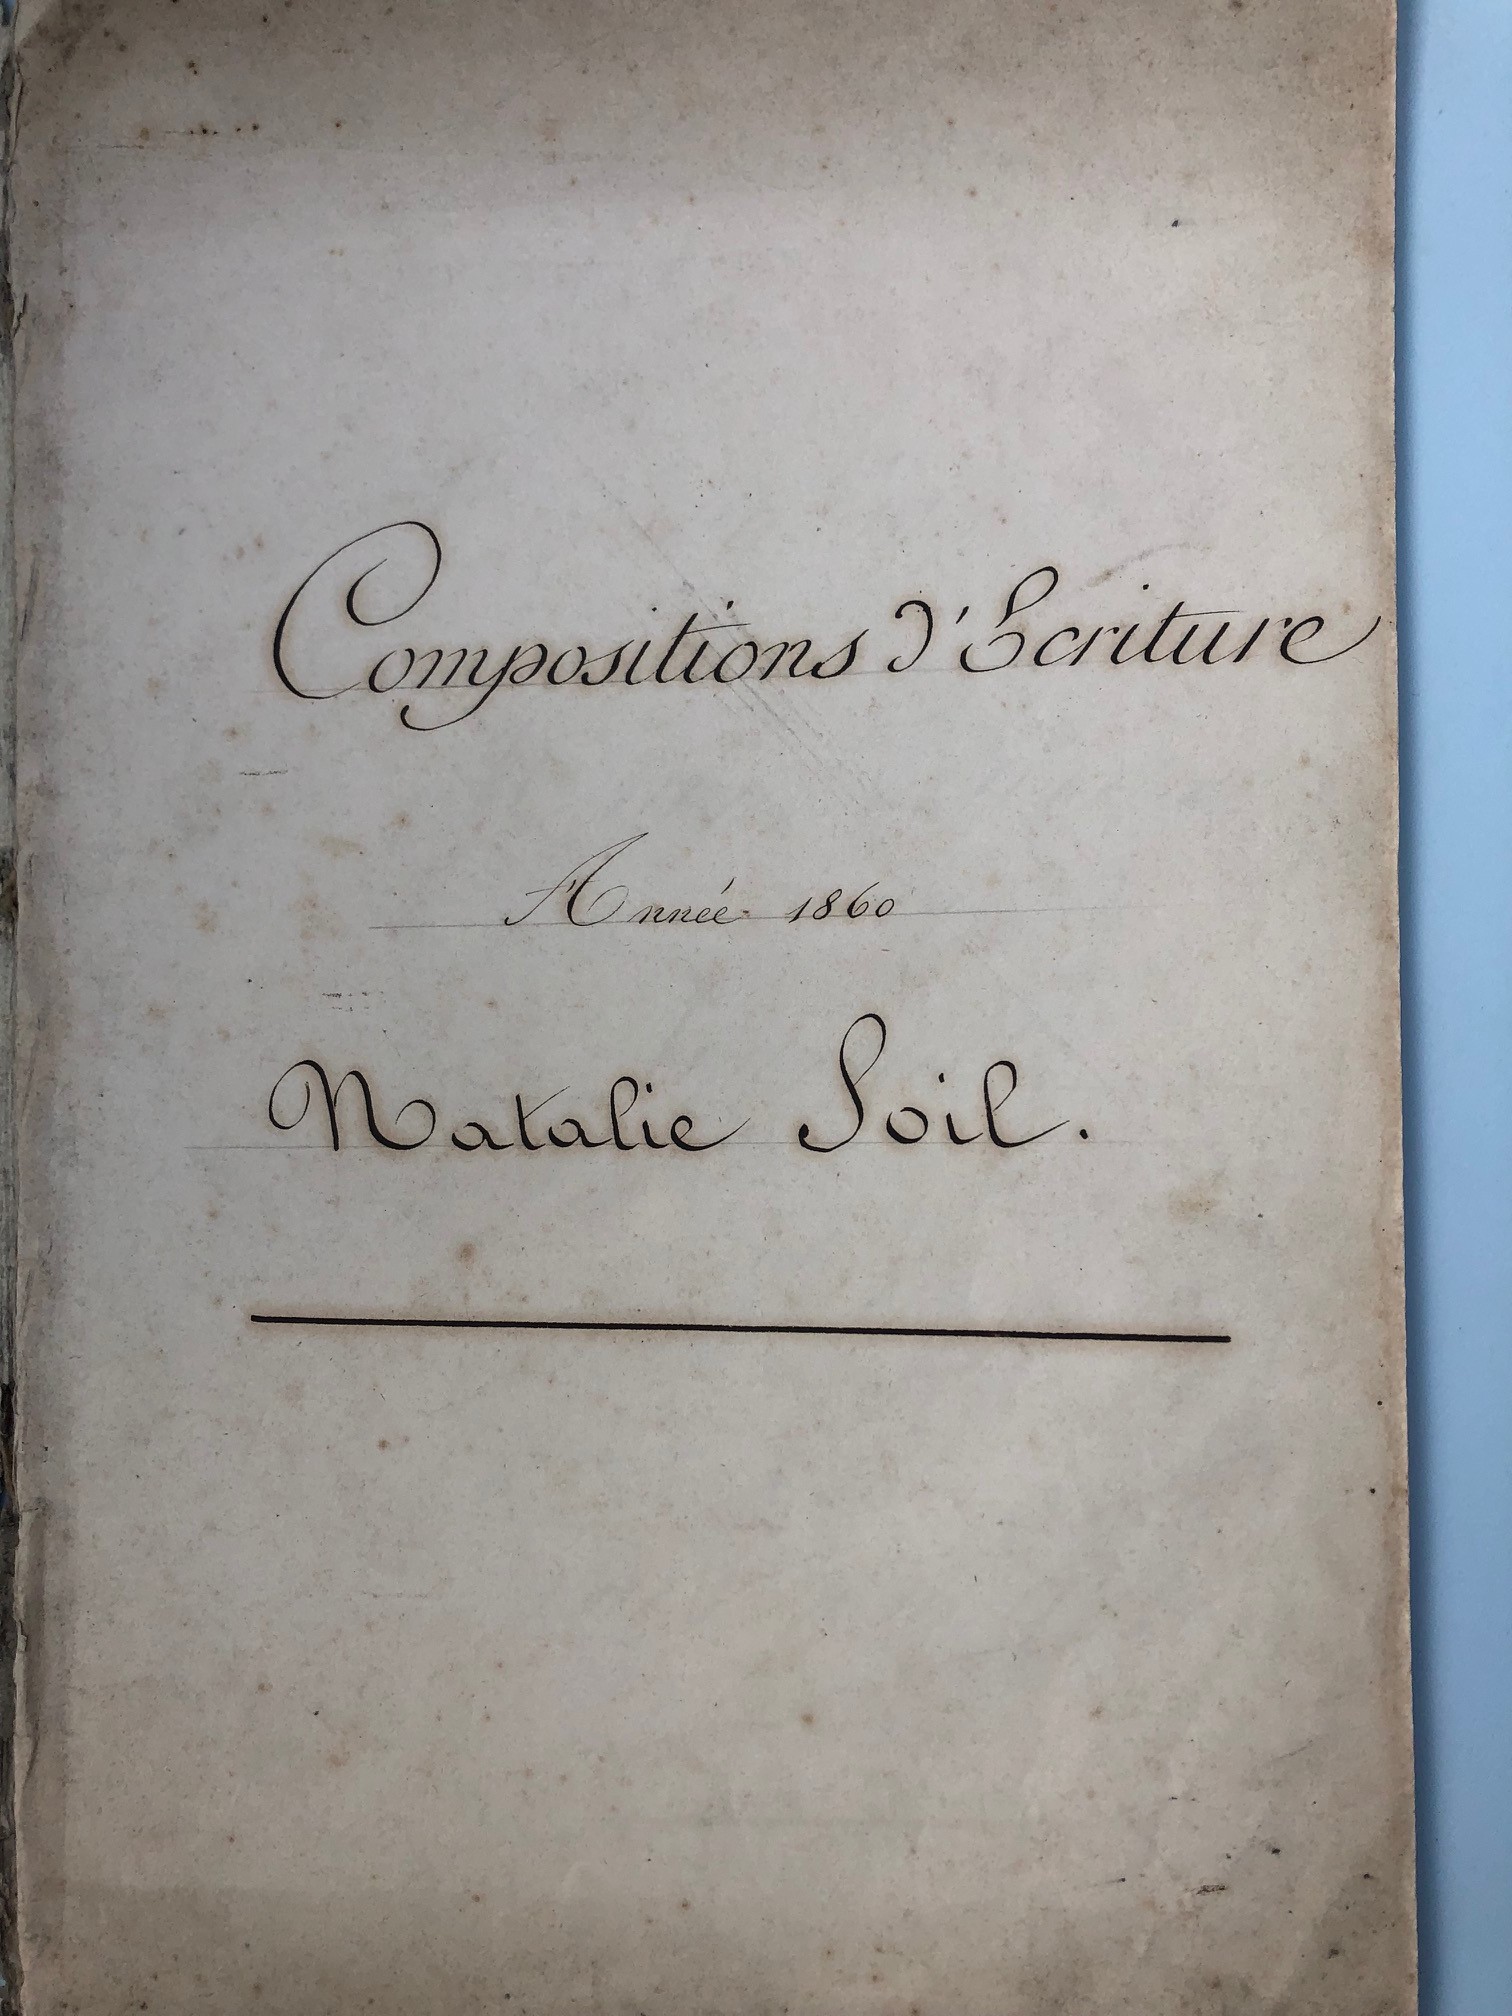 Compositions d'Ecriture
Année 1860
Natalie Soil.